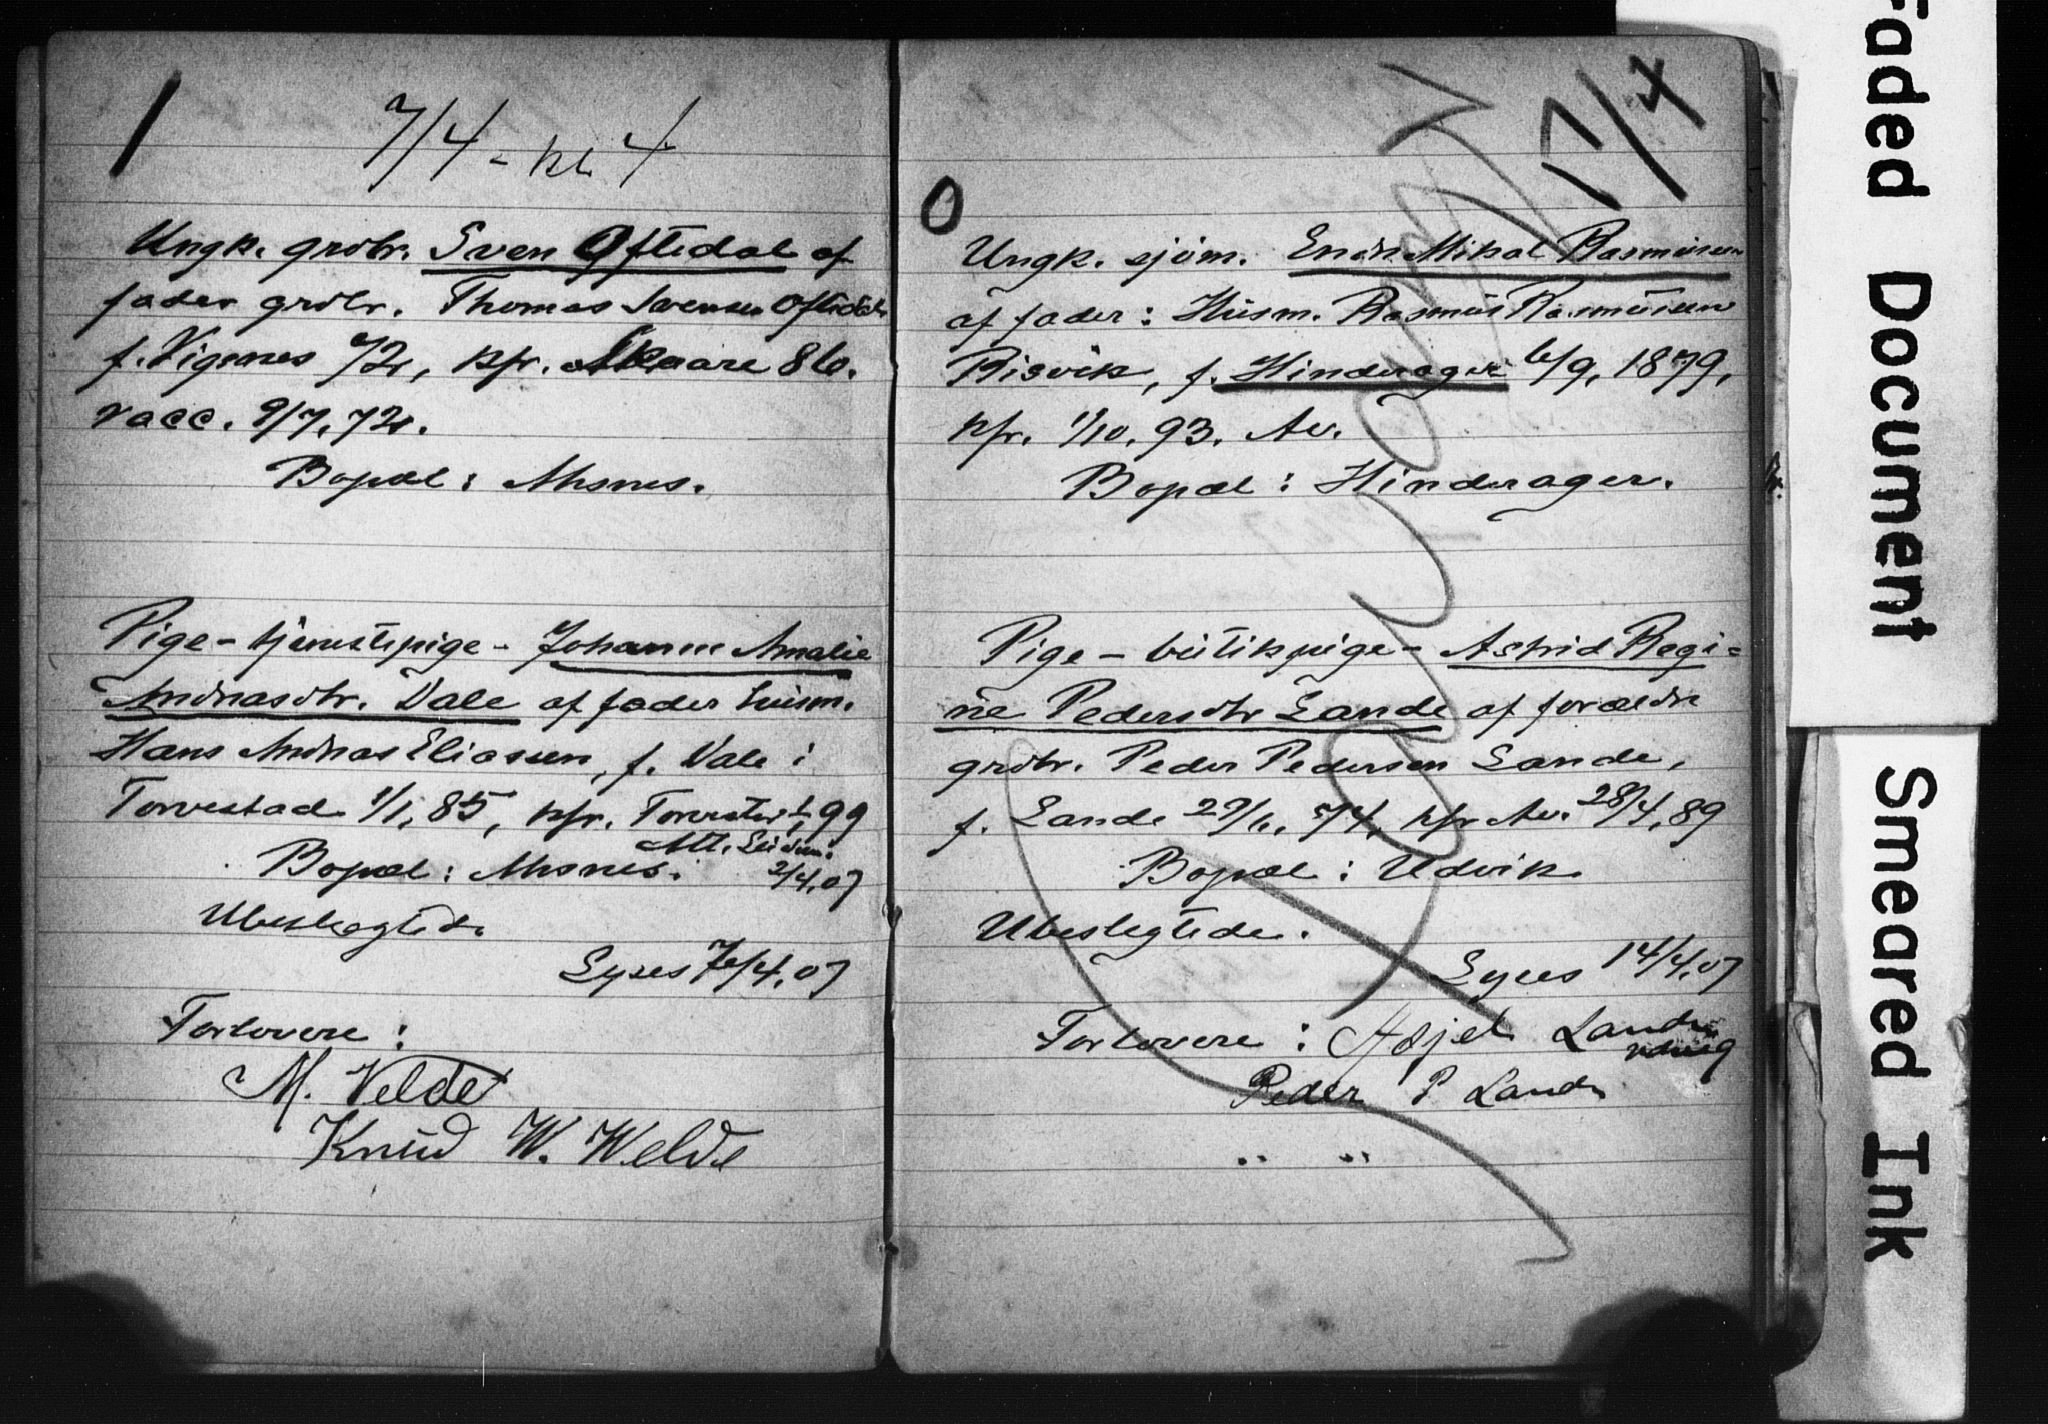 1
7/4 - kl. 4
Ungk. grdbr. Sven Oftedal af
fader grdbr. Thomas Svensen Oftedal
f. Vigsnes 72, kfr. Skaare 86.
vacc. 9/7, 72.
Bopæl:
Pige - tjenestepige - Johanne Amalie
Andreasdtr. Vale af fader husm.
Hans Andreas Eliassen, f. Vale i
Torvestad 1/1, 85, kfr. Torvestad 99
Att.
Bopæl: 2/4, 07
Ubeslegtede
Lyses 7/4, 07
Forlovere:
M. Velde
Knud W. Welde
17/4
0
Ungk. sjøm. Endre Mikal Rasmussen
af fader: Husm. Rasmus Rasmussen
Risvik, f. Hinderager 6/9, 1879,
kfr. 1/10, 93. Av.
Bopæl: Hinderager.
Pige - butikpige - Astrid Regi=
ne Pedersdtr Lande af forældre
grdbr. Peder Pedersen Lande,
f. Lande 74, kfr Av. 28/4, 89
Bopæl: Udvik
Ubeslegtede.
Lyses 14/4, 07
Forlovere: Asjel Lande
Peder P Lande
" "
Faded Document
Smeared Ink